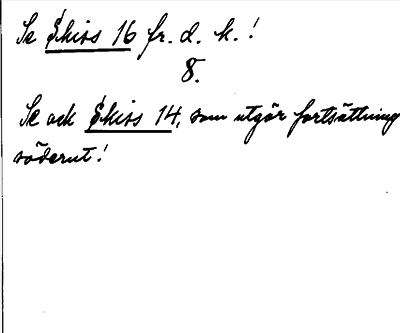 Se Skiss 16 fr. d. k.!
8.
Se ock Skiss 14, som utgör fortsättning
söderut!